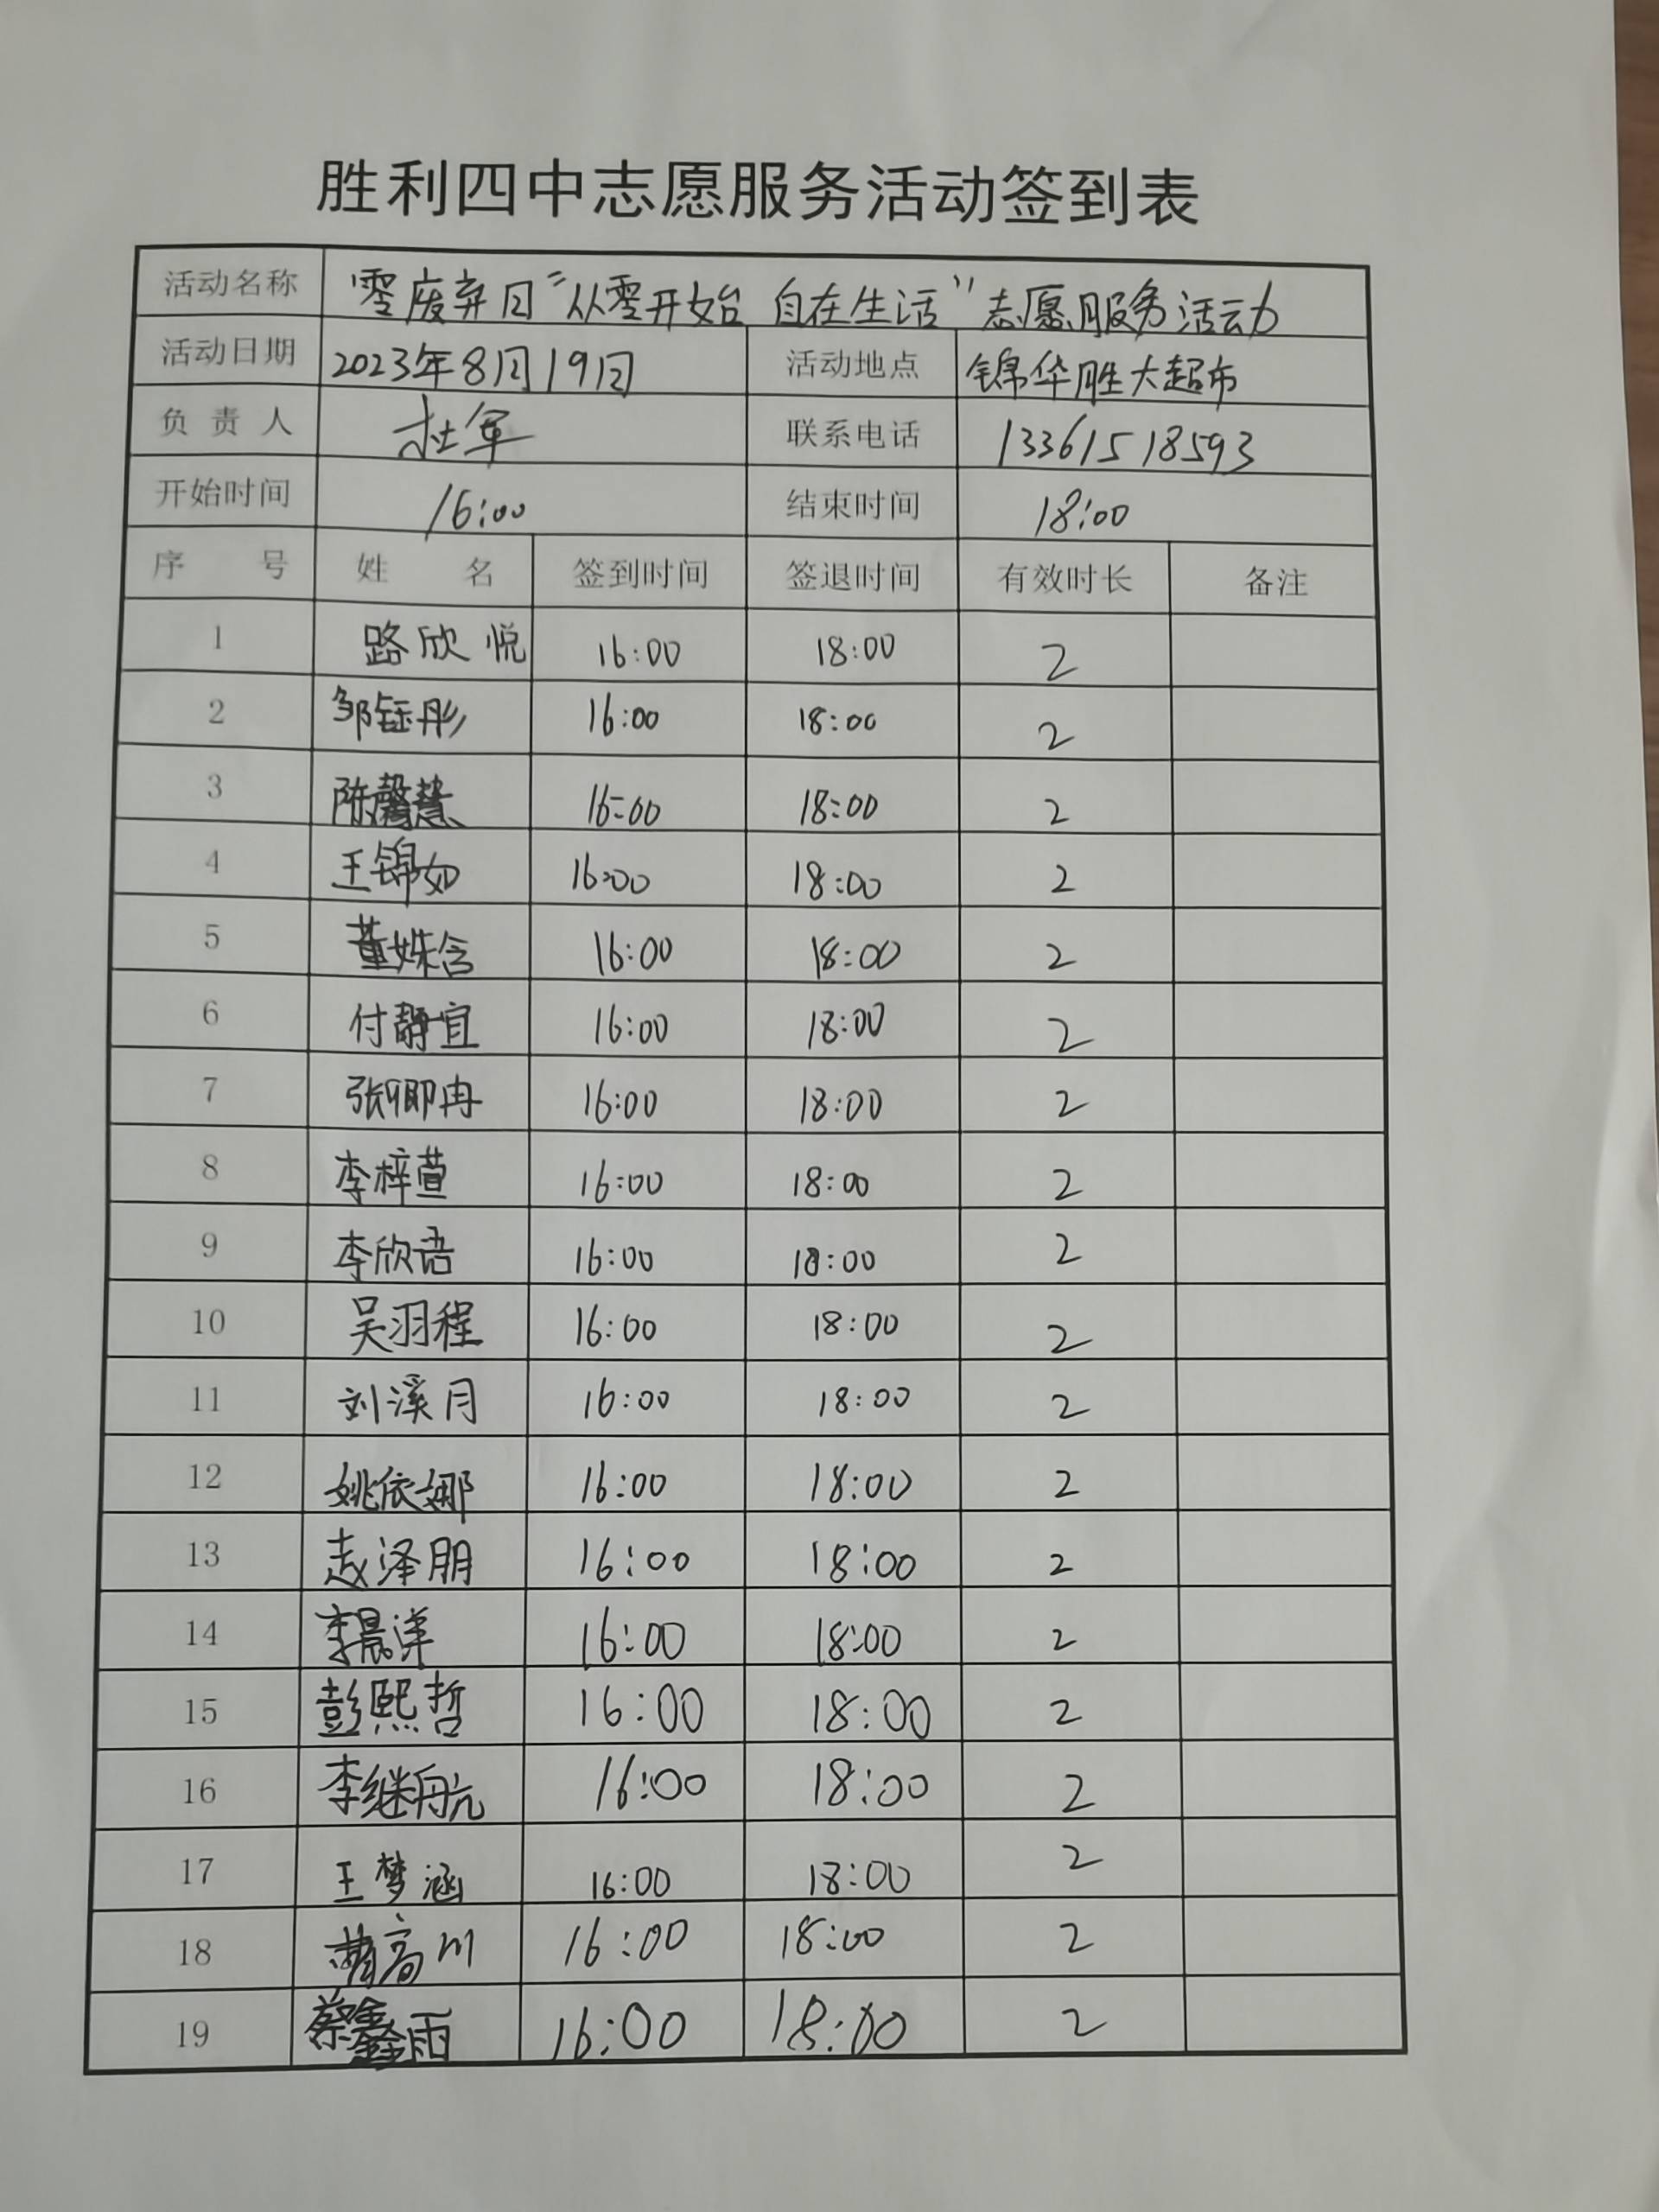 胜利四中志愿服务活动签到表
活动名称 “零废弃日”“从零开始 自在生活”志愿服务活动
活动日期 2023年8月19日 活动地点 锦华胜大超市
负责人 杜军 联系电话 13361518593
开始时间 16:00 结束时间 18:00
序号 姓名 签到时间 签退时间 有效时长 备注
1 路欣悦 16:00 18:00 2
2 邹钰彤 16:00 18:00 2
3 陈馨慧 16:00 18:00 2
4 王锦如 16:00 18:00 2
5 董姝含 16:00 18:00 2
6 付静宜 16:00 18:00 2
7 张卿冉 16:00 18:00 2
8 李梓萱 16:00 18:00 2
9 李欣语 16:00 18:00 2
10 吴羽程 16:00 18:00 2
11 刘溪月 16:00 18:00 2
12 姚依娜 16:00 18:00 2
13 赵泽朋 16:00 18:00 2
14 李晨洋 16:00 18:00 2
15 彭熙哲 16:00 18:00 2
16 李继航 16:00 18:00 2
17 王梦涵 16:00 18:00 2
18 高川 16:00 18:00 2
19 蔡鑫雨 16:00 18:00 2